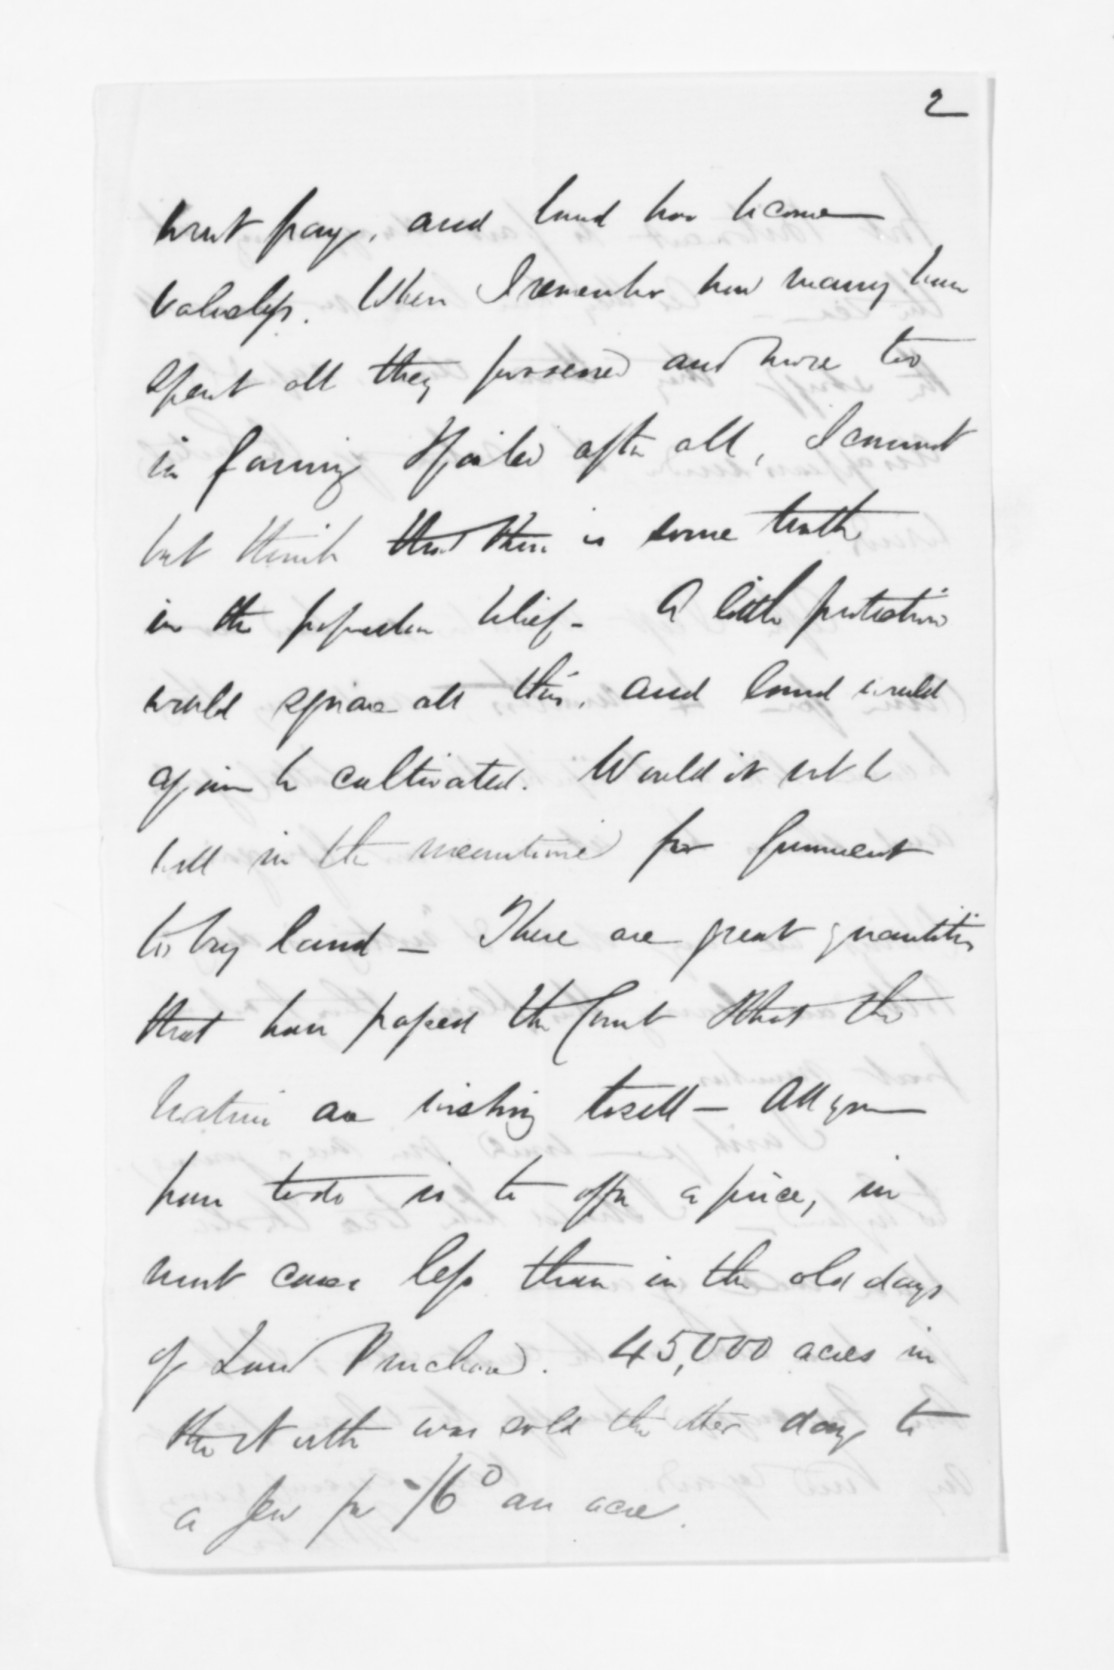 2
wont pay, and land has become
valueless. When I remember how many have
spent all they possessed and more too
in farming & failed after all, I cannot
but think that there is some truth
in the popular belief - A little protection
would square all this, and land would
again be cultivated. Would it not be
well in the meantime for Government
to buy land - There are great quantities
that have passed the Court & that the
natives are wishing to sell - All you
have to do is to offer a price, in
most cases less than in the old days
of Land Purchase. 45,000 acres in
the North was sold the other day to
a Jew for -/6D an acre.